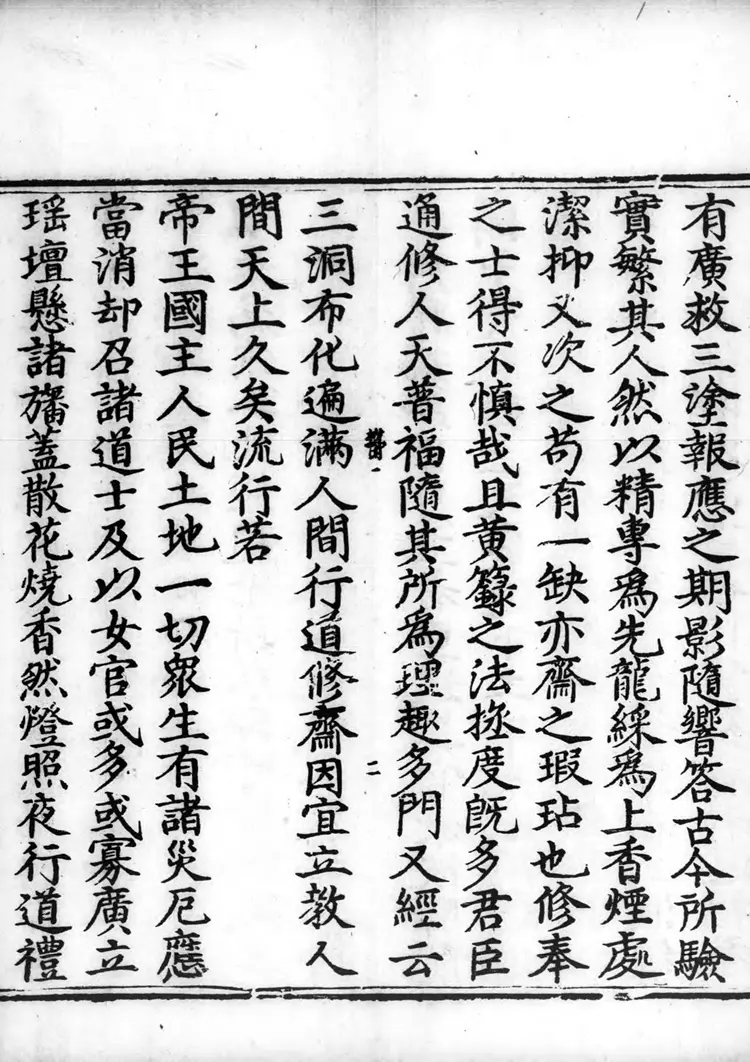 有廣救三塗報應之期影隨響答古今所驗
實繁其人然以精專爲先龍綵爲上香煙處
潔抑又次之苟有一缺亦齋之瑕玷也修奉
之士得不慎哉且黄籙之法拯度旣多君臣
通修人天普福隨其所爲理趣多門又經云
二
三洞布化遍滿人間行道修齋因宜立教人
間天上久矣流行若
帝王國主人民土地一切衆生有諸災厄應
當消却召諸道士及以女官或多或寡廣立
瑶壇懸諸旛蓋散花燒香然燈照夜行道禮